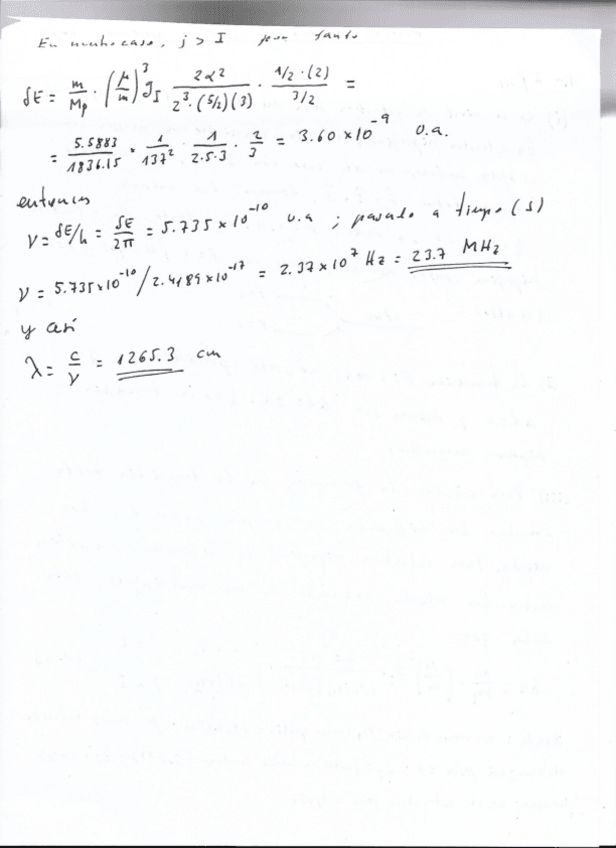 En nuestro caso, j > I por tanto
δE = m/Mp · (μ/m)³ g_I 2α²/(2³·(5/2)(3)) · (1/2·(2))/(3/2) =
= 5.5883/1836.15 × 1/137² · 1/(2·5·3) · 2/3 = 3.60 × 10⁻⁹ u.a.
entonces
ν = δE/h = δE/2π = 5.735 × 10⁻¹⁰ u.a ; pasado a tiempo (s)
ν = 5.735×10⁻¹⁰ / 2.4189×10⁻¹⁷ = 2.37 × 10⁷ Hz = 23.7 MHz
y así
λ = c/ν = 1265.3 cm